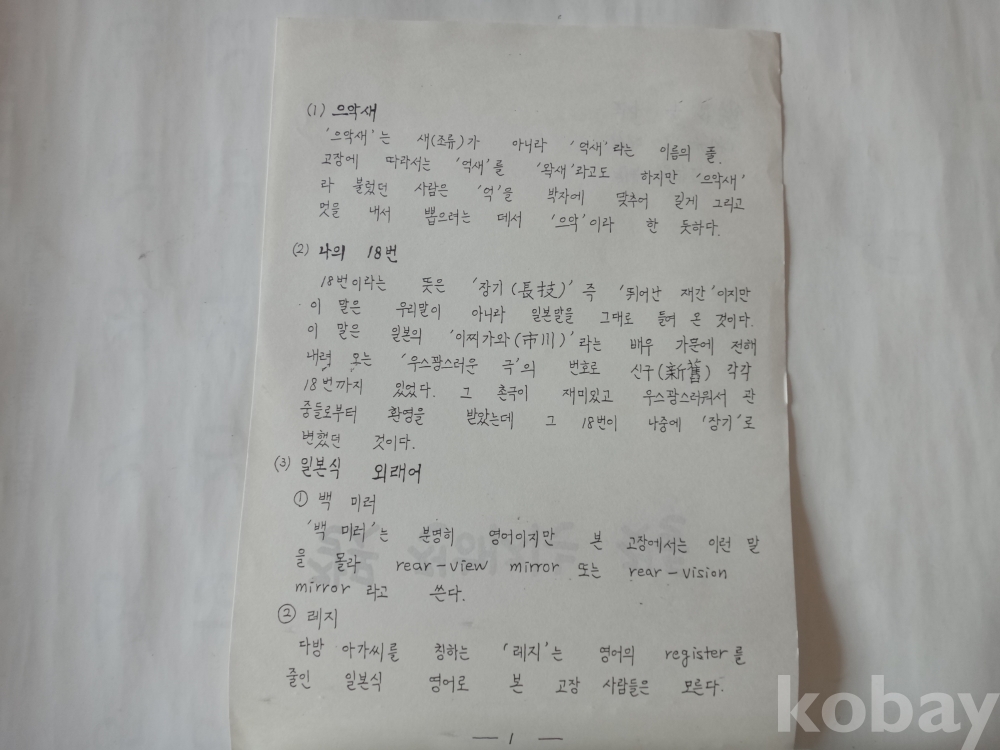 (1) 으악새
'으악새'는 새(조류)가 아니라 '억새'라는 이름의 풀.
고장에 따라서는 '억새'를 '왁새'라고도 하지만 '으악새'
라 불렀던 사람은 '억'을 박자에 맞추어 길게 그리고
멋을 내서 뽑으려는 데서 '으악'이라 한 듯하다.
(2) 나의 18번
18번이라는 뜻은 '장기(長技)' 즉 '뛰어난 재간'이지만
이 말은 우리말이 아니라 일본말을 그대로 들여 온 것이다.
이 말은 일본의 '이찌가와(市川)'라는 배우 가문에 전해
내려 오는 '우스꽝스러운 극'의 번호로 신구(新舊) 각각
18번까지 있었다. 그 촌극이 재미있고 우스꽝스러워서 관
중들로부터 환영을 받았는데 그 18번이 나중에 '장기'로
변했던 것이다.
(3) 일본식 외래어
① 백 미러
'백 미러'는 분명히 영어이지만 본 고장에서는 이런 말
을 몰라 rear-view mirror 또는 rear-vision
mirror 라고 쓴다.
② 레지
다방 아가씨를 칭하는 '레지'는 영어의 register를
줄인 일본식 영어로 본 고장 사람들은 모른다.
— 1 —
kobay